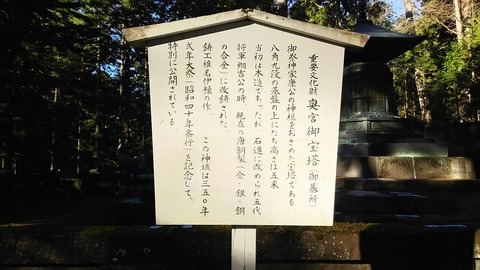 重要文化財 奥宮御宝塔(御墓所)
御祭神家康公の神柩をおさめた宝塔である
八角九段の基盤の上にたち高さは五米
当初は木造であったが 石造に改められ五代
将軍綱吉公の時、現在の唐銅製(金・銀・銅
の合金)に改鋳された。
鋳工椎名伊豫の作。 この神域は三五〇年
式年大祭(昭和四十年斎行)を記念して、
特別に公開されている。